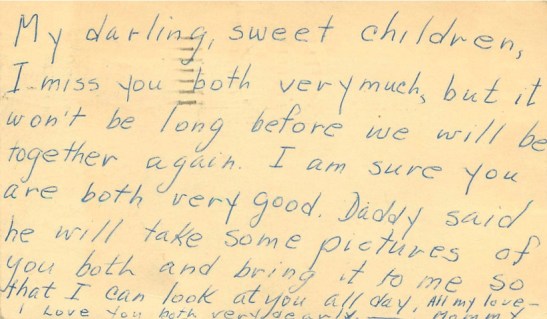 My darling, sweet children,
I miss you both very much, but it
won't be long before we will be
together again. I am sure you
are both very good. Daddy said
he will take some pictures of
you both and bring it to me so
that I can look at you all day. All my love—
I Love You both very dearly. — Mommy